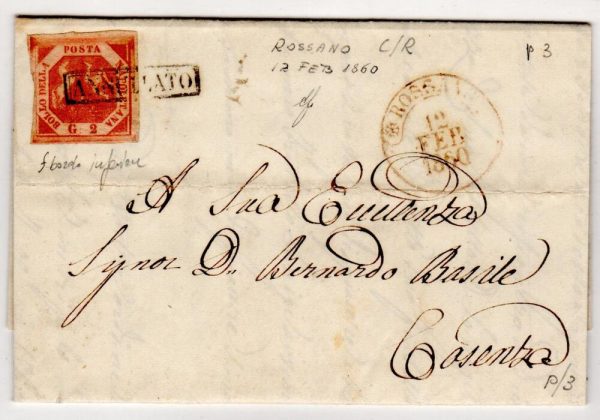 POSTA
BOLLO DELLA
G 2
ANNULLATO
ROSSANO C/R
12 FEB 1860
p 3
ROSSAN
12
FEB
1860
f bordo inferiore
A Sua Eccellenza
Signor D. Bernardo Basile
Cosenza
p/3